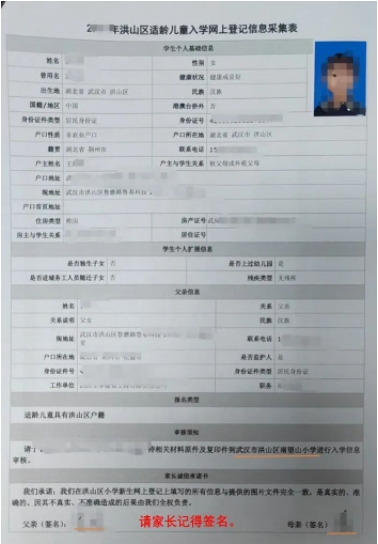 年洪山区适龄儿童入学网上登记信息采集表
学生个人基础信息
姓名 性别 女
曾用名 健康状况 健康或良好
出生地 湖北省 武汉市 洪山区 民族 汉族
国籍/地区 中国 港澳台侨外 否
身份证件类型 居民身份证 身份证号
户口性质 非农业户口 户口所在地 湖北省 武汉市 洪山区
籍贯 湖北省 荆州市 联系电话 15
户主姓名 户主与学生关系 祖父母或外祖父母
户口地址 武
现地址 武汉市洪山区鲁磨路
户口首页地址
住房类型 房产证号
房主与学生关系 居住证号
学生个人扩展信息
是否独生子女 否 是否上过幼儿园 是
是否进城务工人员随迁子女 否 残疾类型 无残疾
父亲信息
姓名 关系 父亲
关系说明 父女 民族 汉族
现地址 武汉市洪山区鲁磨路 联系电话 1
户口所在地 是否监护人 是
身份证件号 身份证件类型 居民身份证
工作单位 职务
报名类型
适龄儿童具有洪山区户籍
审核须知
请于 持相关材料原件及复印件到武汉市洪山区南望山小学进行入学信息
审核。
家长诚信承诺书
我们承诺，我们在洪山区小学新生网上登记上填写的所有信息与提供的图片文件完全一致，是真实的、准
确的，因其不真实、不准确造成的后果由我们全权负责。
父亲（签名）： 请家长记得签名。 母亲（签名）：